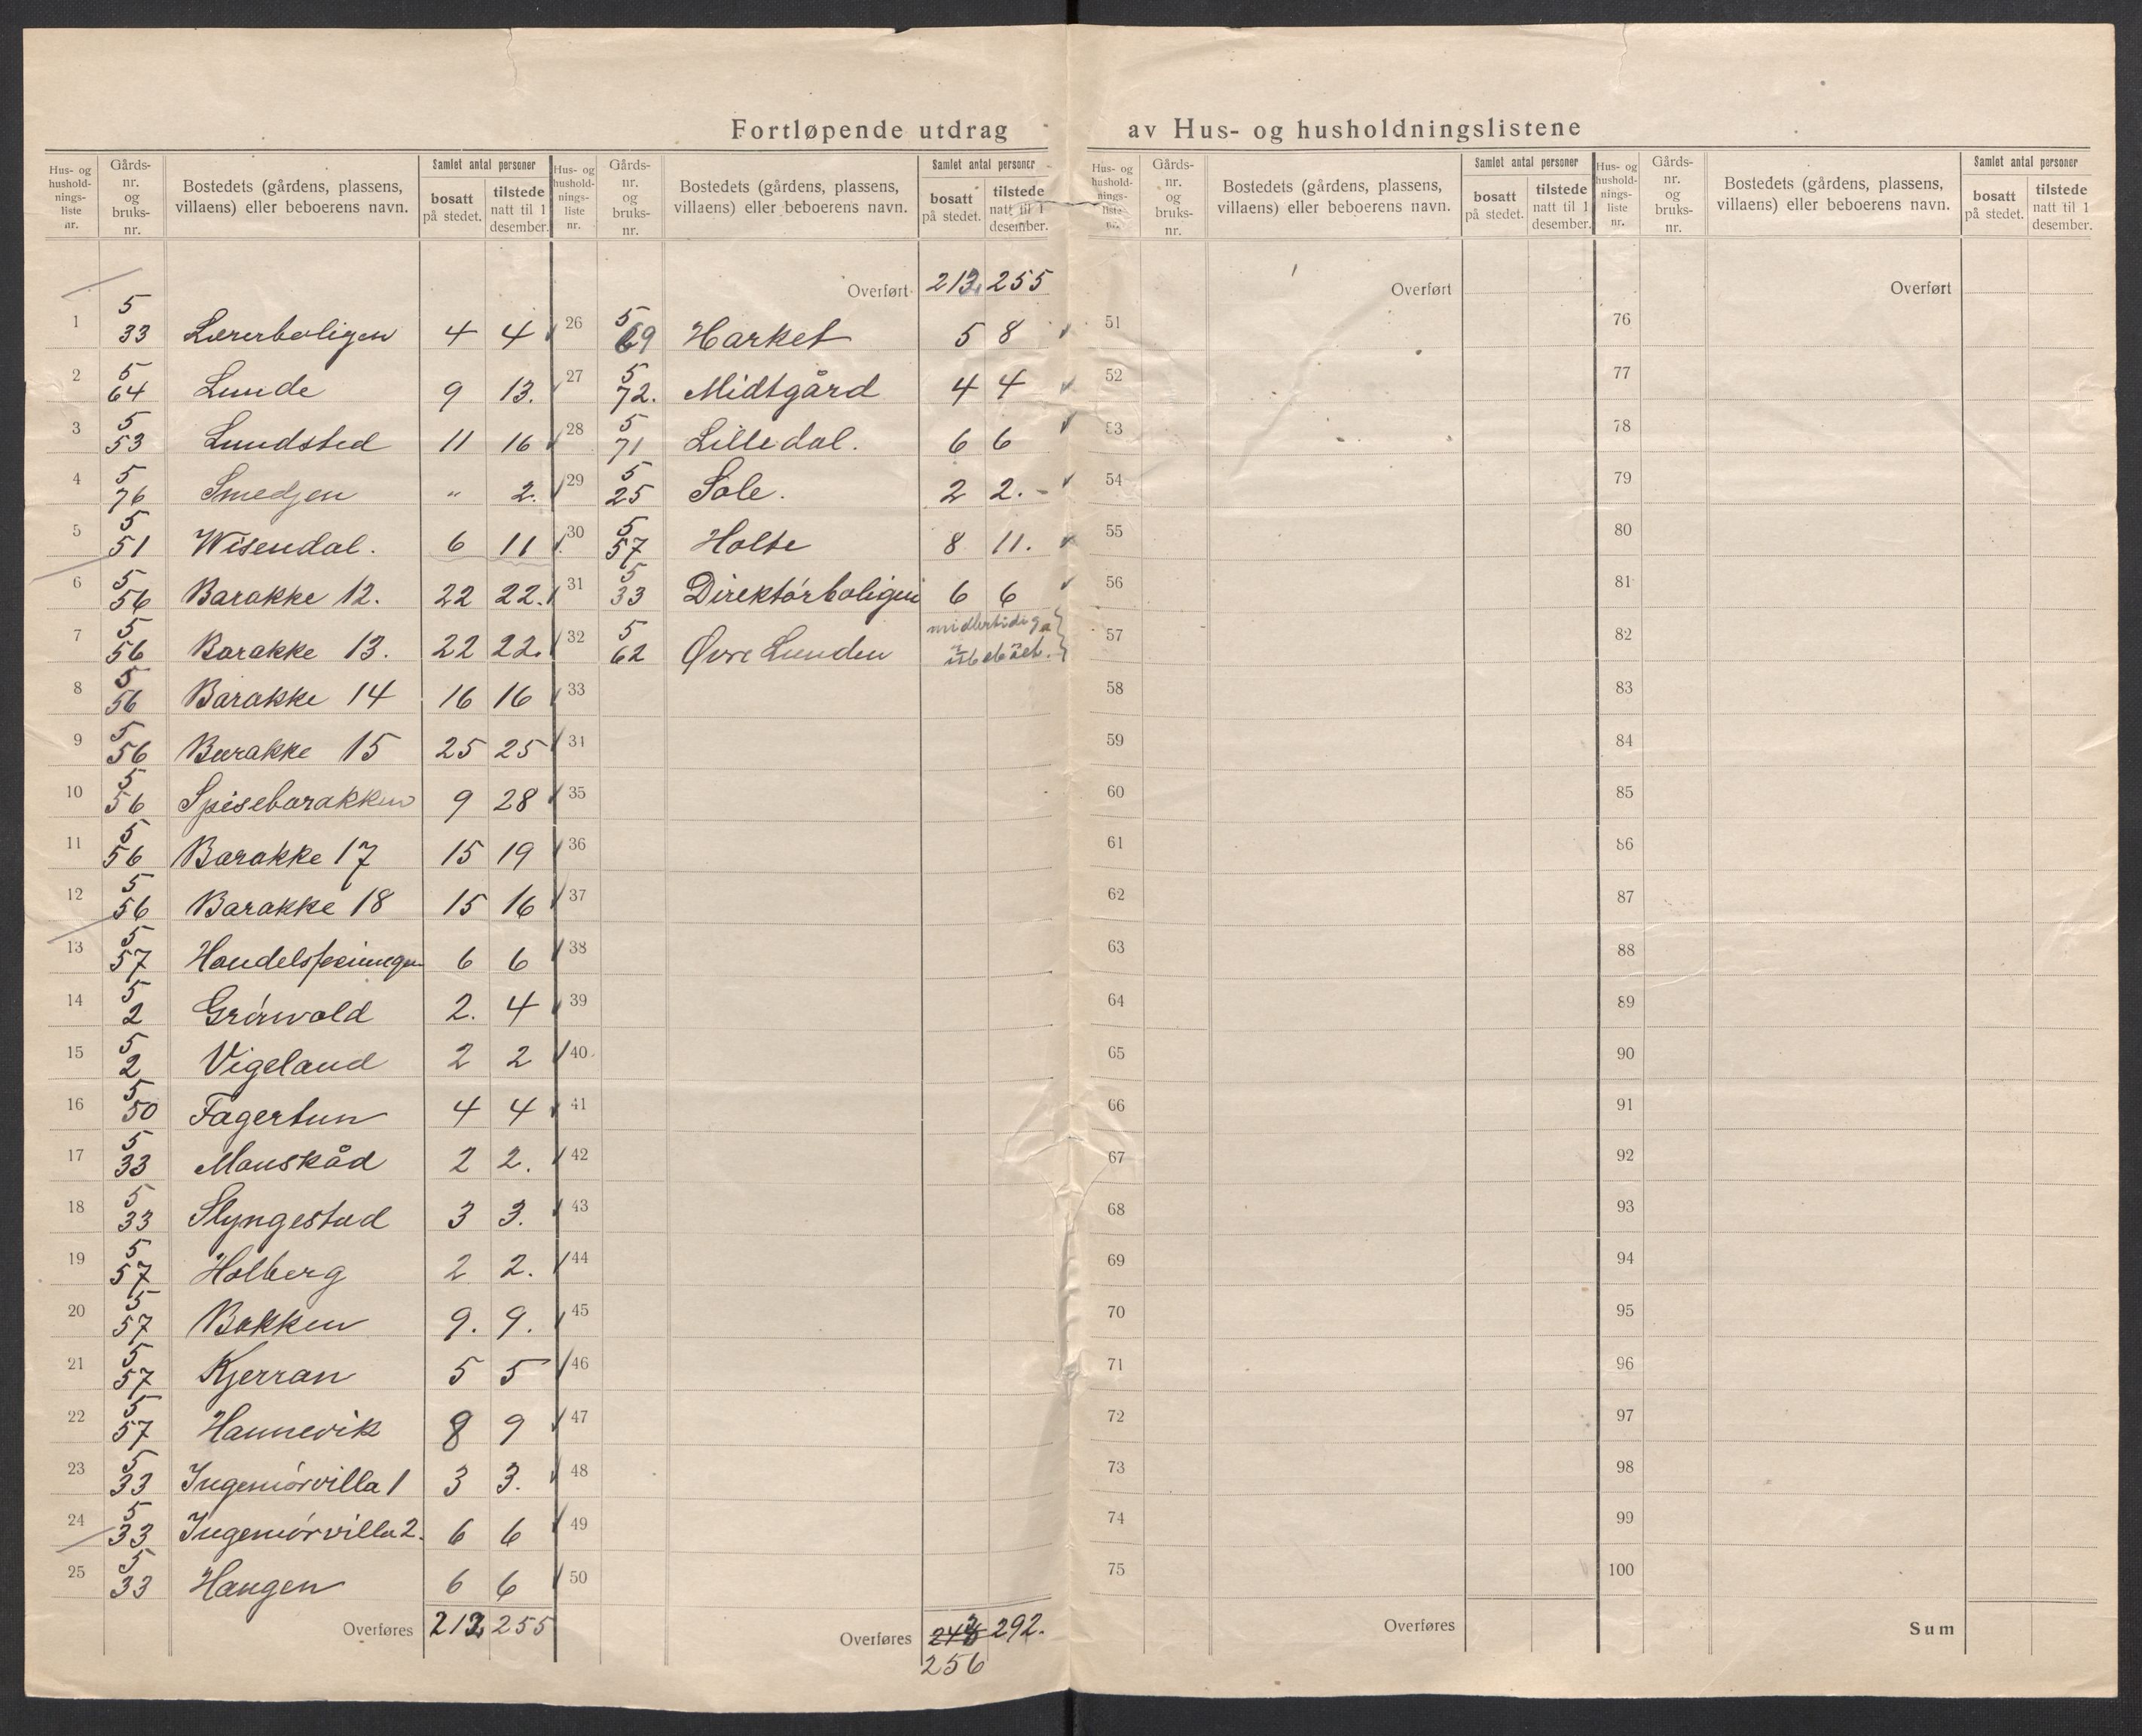 Fortløpende utdrag av Hus- og husholdningslistene
Hus- og hushold-nings-liste nr. Gårds-nr. og bruks-nr. Bostedets (gårdens, plassens, villaens) eller beboerens navn. Samlet antal personer bosatt på stedet. tilstede natt til 1 desember.
1 5 33 Lærerboligen 4 4
2 5 64 Lunde 9 13.
3 5 53 Lundsted 11 16
4 5 76 Smedjen " 2.
5 5 51 Wisendal. 6 11
6 5 56 Barakke 12. 22 22.
7 5 56 Barakke 13. 22 22.
8 5 56 Barakke 14 16 16
9 5 56 Barakke 15 25 25
10 5 56 Spisebarakken 9 28
11 5 56 Barakke 17 15 19
12 5 56 Barakke 18 15 16
13 5 57 6 6
14 5 2 Grönvold 2. 4
15 5 2 Vigeland 2 2
16 5 50 Fagertun 4 4
17 5 33 Monskåd 2 2.
18 5 33 Slyngestad 3 3.
19 5 57 Holberg 2 2.
20 5 57 Bakken 9. 9.
21 5 57 Kjerran 5 5
22 5 57 Hannevik 8 9
23 5 33 Ingeniörvilla 1 3 3.
24 5 33 Ingeniörvilla 2. 6 6
25 5 33 Haugen 6 6
Overføres 212 255
Hus- og hushold-nings-liste nr. Gårds-nr. og bruks-nr. Bostedets (gårdens, plassens, villaens) eller beboerens navn. Samlet antal personer bosatt på stedet. tilstede natt til 1 desember.
Overført 212 255
26 5 69 Harket 5 8
27 5 72. Midtgård 4 4
28 5 71 Lilledal. 6 6
29 5 25 Sole. 2 2.-
30 5 57 Holte 8 11.
31 5 33 Direktörboligen 6 6
32 5 62 Øvre Lunden midlertidiga
33
34
35
36
37
38
39
40
41
42
43
44
45
46
47
48
49
50
Overføres 292.
256
Hus- og hushold-nings-liste nr. Gårds-nr. og bruks-nr. Bostedets (gårdens, plassens, villaens) eller beboerens navn. Samlet antal personer bosatt på stedet. tilstede natt til 1 desember.
Overført
51
52
53
54
55
56
57
58
59
60
61
62
63
64
65
66
67
68
69
70
71
72
73
74
75
Overføres
Hus- og husholdnings-liste nr. Gårds-nr. og bruks-nr. Bostedets (gårdens, plassens, villaens) eller beboerens navn. Samlet antal personer bosatt på stedet. tilstede natt til 1 desember.
Overført
76
77
78
79
80
81
82
83
84
85
86
87
88
89
90
91
92
93
94
95
96
97
98
99
100
Sum